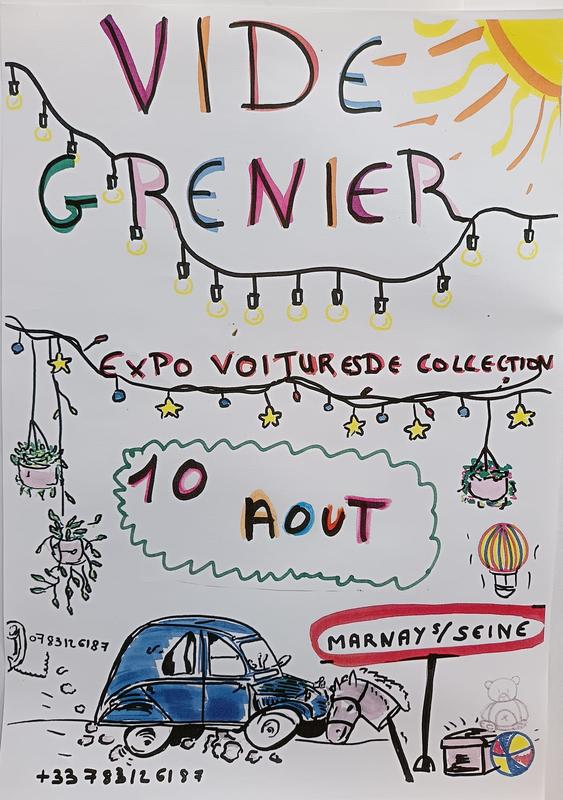 VIDE
GRENIER
EXPO VOITURES DE COLLECTION
10
AOUT
MARNAY S/SEINE
0783126187
+33 783126187